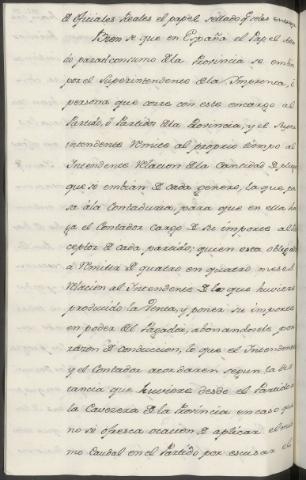 D. oficiales Reales el papel sellado q.e sele
Bien se que en España el Papel
do para el consumo d. la Provincia se embia
por el Superintendente d. la Imprenta, ô
persona que corre con este encargo al
Partido, ô Partidos d. la Provincia; y el Supe
intendente Remite al próprio tiempo al
Intendente Relacion d. la Cantidad D. pliegos
que se embian D. cada genero, la que pa
sa â la Contaduria, para que en ella ha
ga el Contador cargo D. su importe al Re
ceptor D. cada partido; quien esta obligado
â Remitir D. quatro en quatro meses
Relacion al Intendente D. lo que huviere
producido la Renta, y poner su importe
en poder del Pagador, abonandosele por
razon D. conduccion, lo que el Intendente
y el Contador acordaren segun la dis
tancia que huviere desde el Partido â
la Cavezera D. la Provincia en caso que
no se ofresca ocacion D. aplicar el mis
mo Caudal en el Partido por escusar el